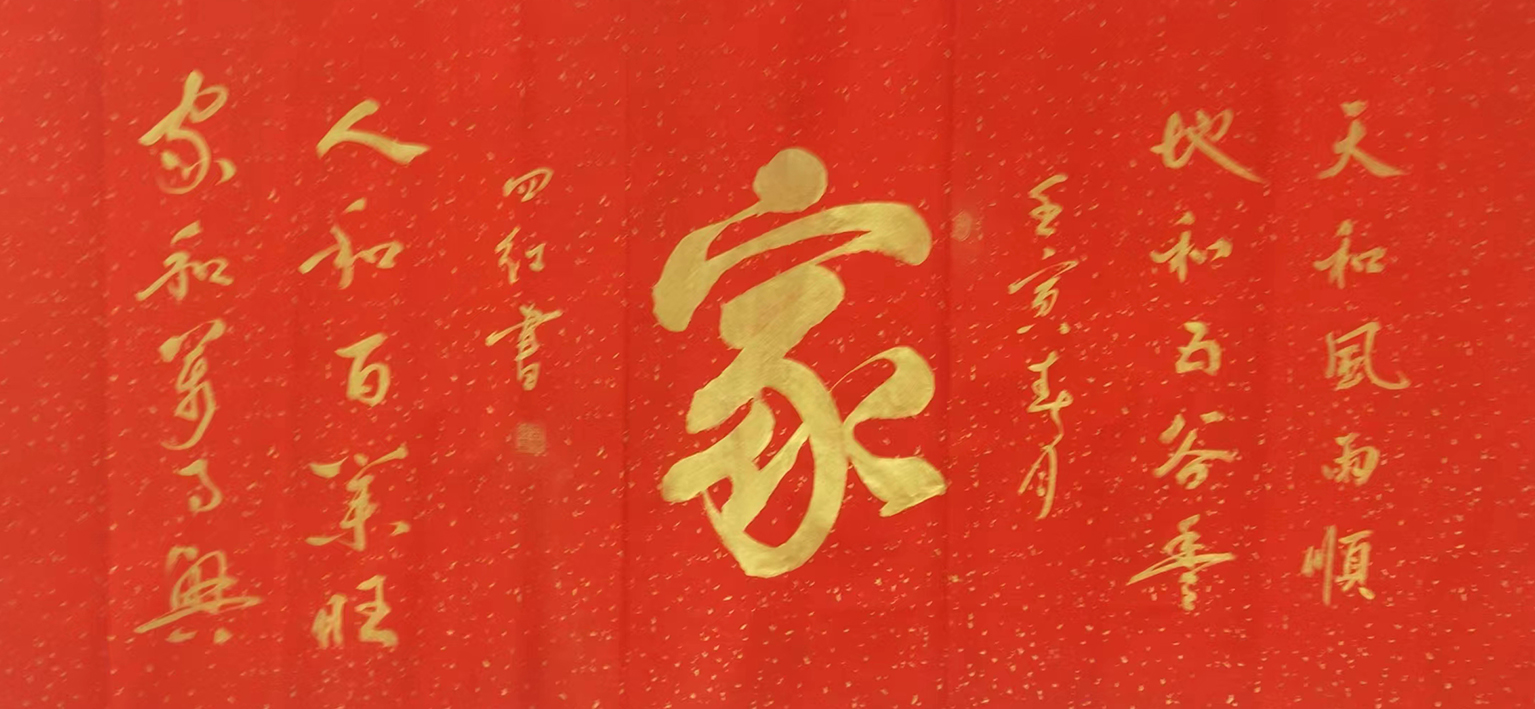 天和風雨順
地和五谷豊
壬寅春月
家
四红書
人和百業旺
家和萬事興